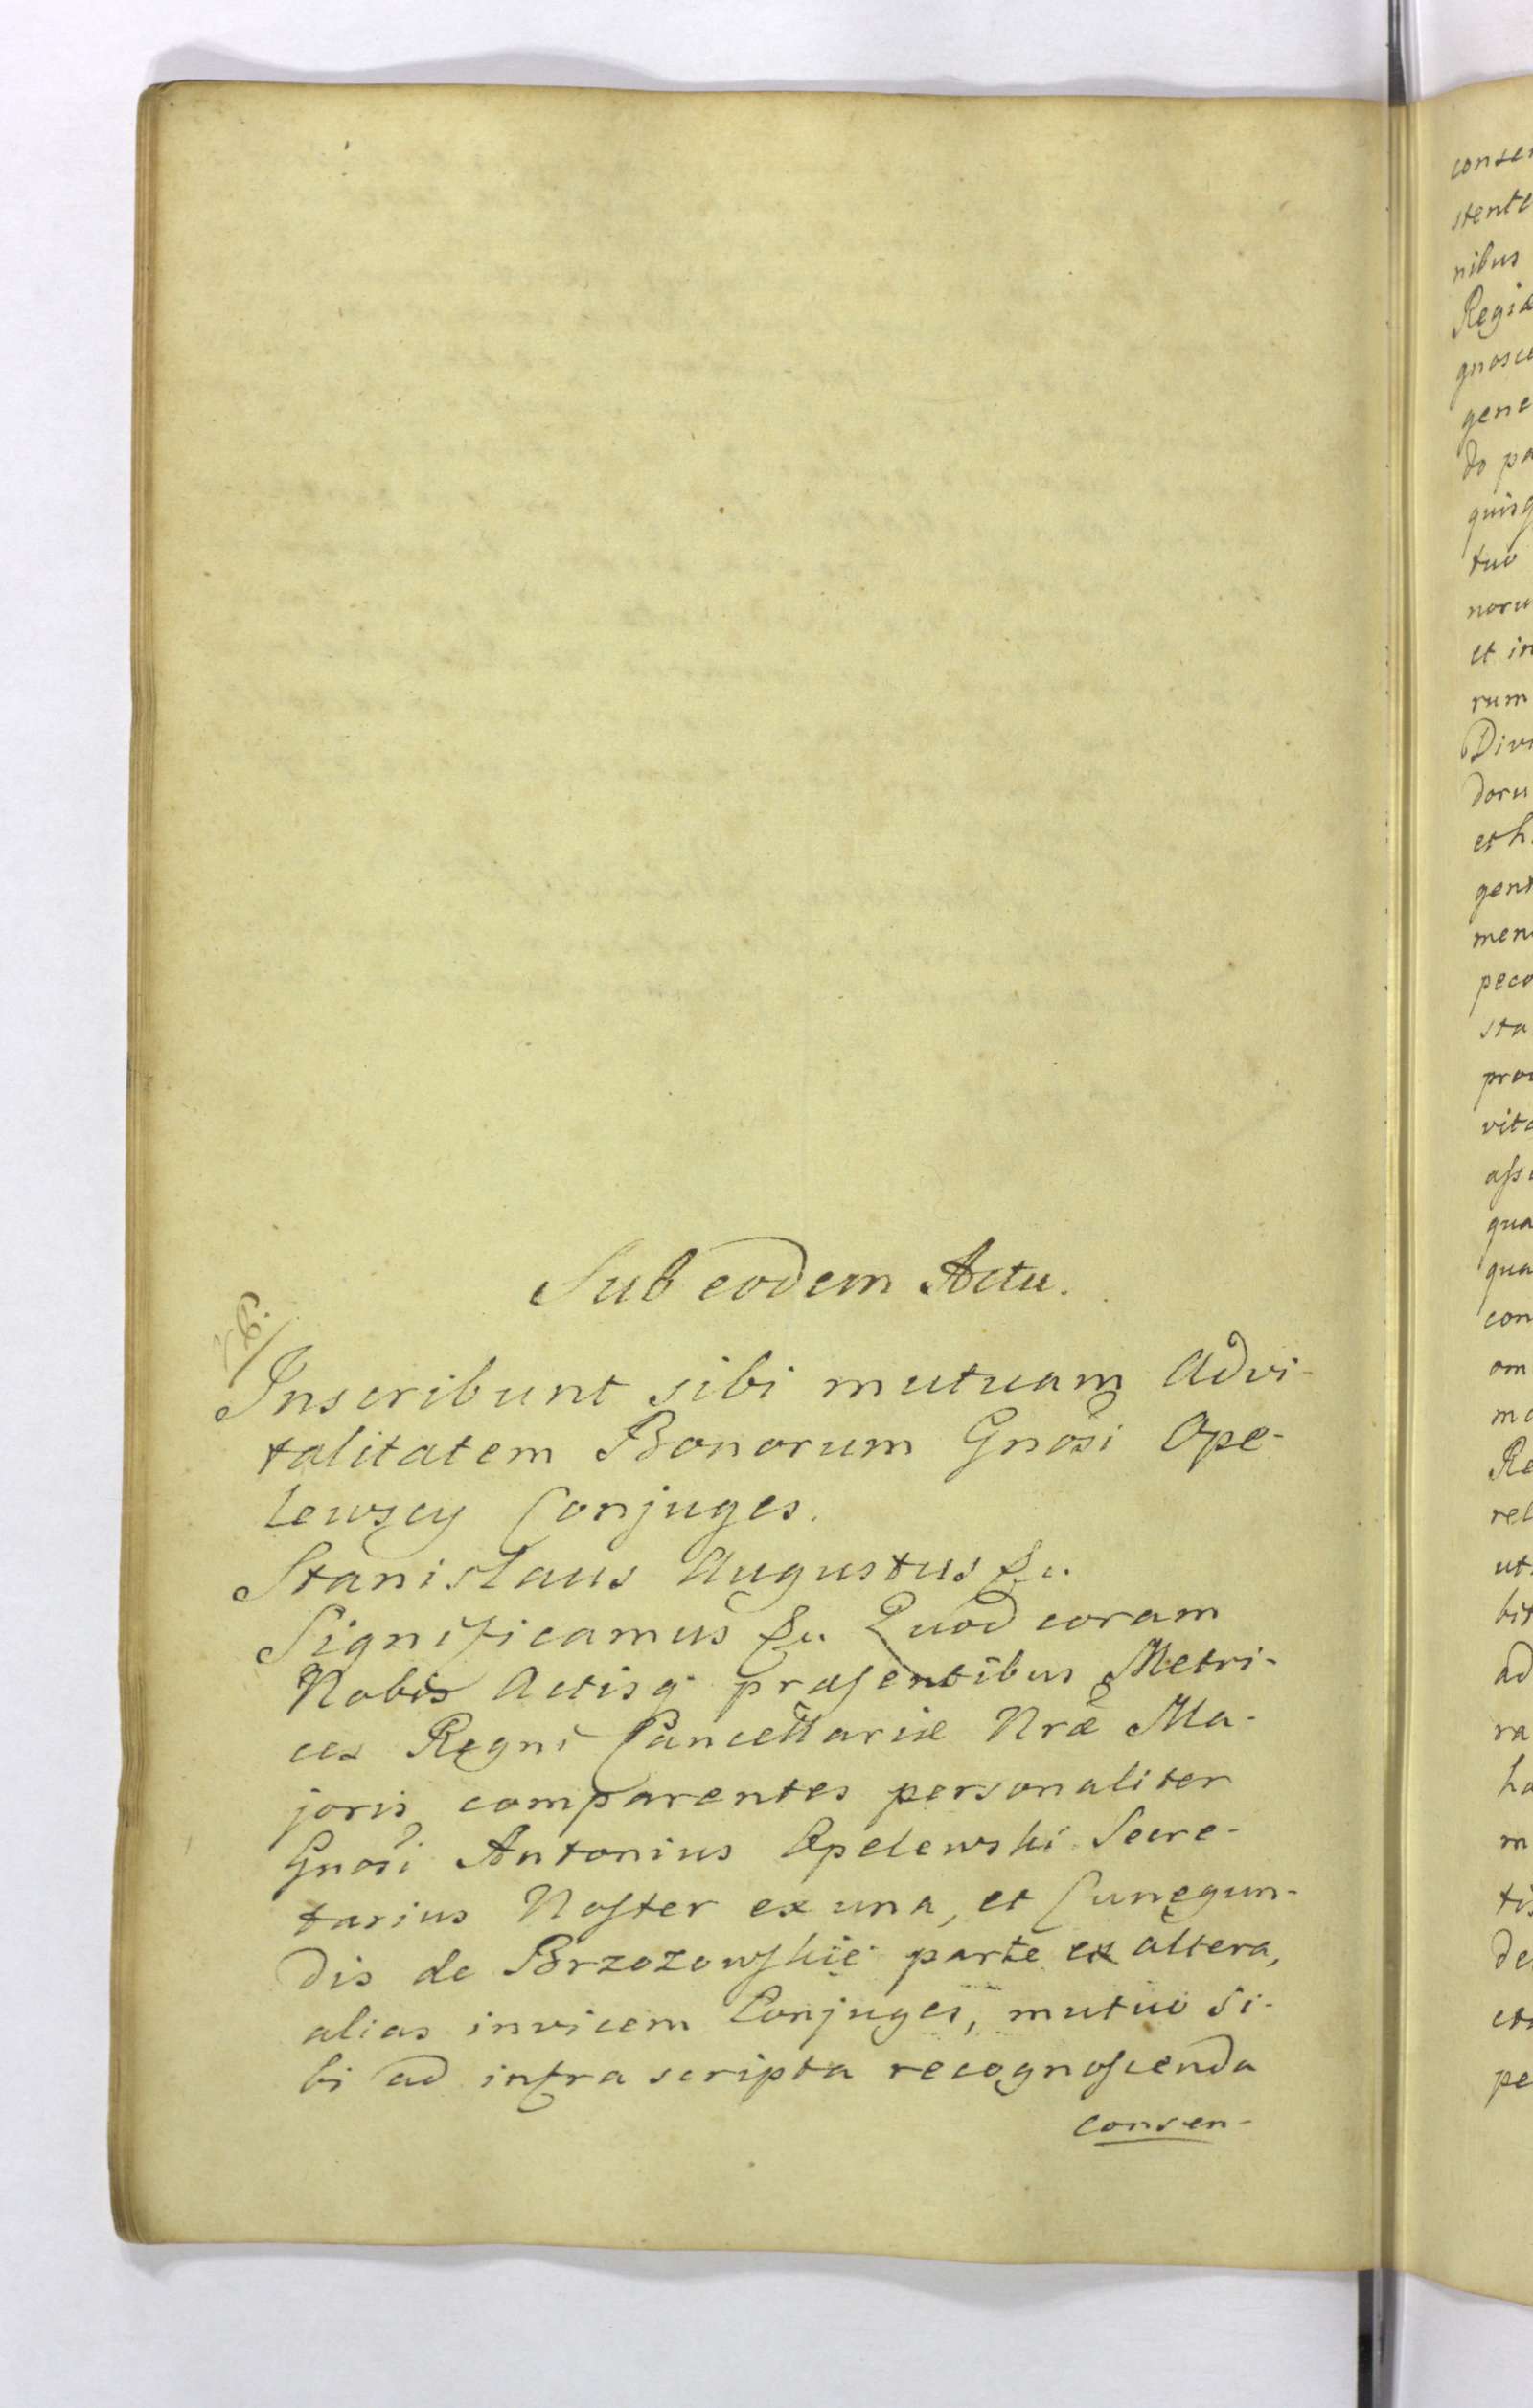 Sub eodem Actu.
Inscribunt sibi mutuam Advi-
talitatem Bonorum Gnosi Ope-
lewscy Conjuges.
Stanislaus Augustus &c.
Significamus &c. Quod coram
Nobis Actisq. præsentibus Metri-
ces Regni Cancellariæ Nræ Ma-
joris comparentes personaliter
Gnosi Antonius Opelewski Secre-
tarius Noster ex una, et Cunegun-
dis de Brzozowskie parte ex altera,
alias invicem Conjuges, mutuo si-
bi ad infra scripta recognoscenda
consen-
conse
stente
nibus
Regiæ
gnosce
gene
do pa
quisq
tuo
noru
et in
rum
Divi
doru
et h
gent
men
peco
sta
pro
vita
assi
qua
qua
con
om
mo
Re
rel
ut
bit
ad
ra
ha
m
tis
de
et
pe